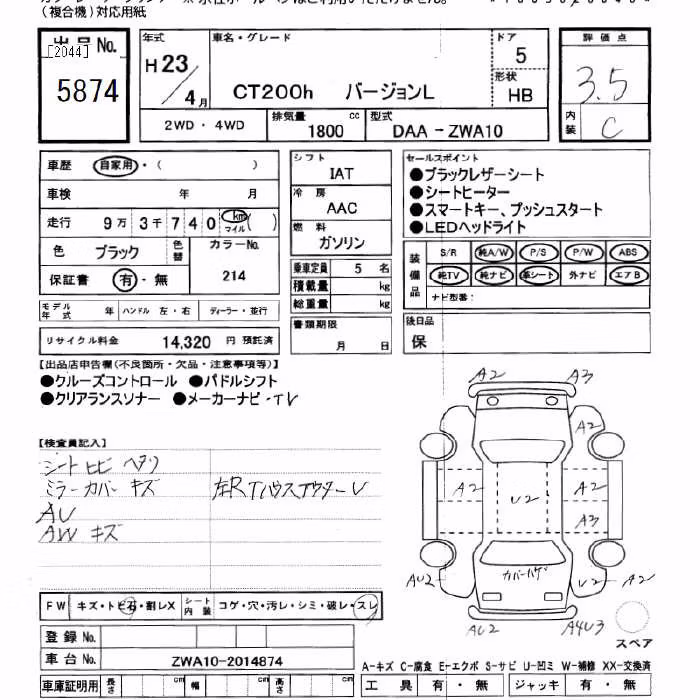 （複合機）対応用紙
出品No.
[2044]
5874
年式 H23/4月
車名・グレード
CT200h バージョンL
ドア 5
形状 HB
評価点 3.5
内装 C
2WD・4WD
排気量 1800 cc
型式 DAA-ZWA10
車歴 自家用・( )
車検 年 月
走行 9万3千740 km マイル ( )
色 ブラック 色替 カラーNo. 214
保証書 有・無
モデル年式 年 ハンドル 左・右 ディーラー・並行
リサイクル料金 14,320 円 預託済
シフト IAT
冷房 AAC
燃料 ガソリン
乗車定員 5 名
積載量 kg
総重量 kg
書類期限 月 日
セールスポイント
●ブラックレザーシート
●シートヒーター
●スマートキー、プッシュスタート
●LEDヘッドライト
装備品
S/R 純A/W P/S P/W ABS
純TV 純ナビ 革シート 外ナビ エアB
ナビ型番：
後日品
保
【出品店申告欄(不良箇所・欠品・注意事項等)】
●クルーズコントロール ●パドルシフト
●クリアランスソナー ●メーカーナビ・TV
【検査員記入】
シートヒビ ヘタリ
ミラーカバーキズ 左RTハウスアウターU
AU
AW キズ
A2 A3
A2
A2 U2 A2
A3
カバーハゲ
AU2 U2 A2
AU2 A4U3
スペア
FW キズ・トビ石・割レX シート内装 コゲ・穴・汚レ・シミ・破レ・スレ
登録No.
車台No. ZWA10-2014874
車庫証明用 長さ cm 幅 cm 高さ cm
A-キズ C-腐食 E-エクボ S-サビ U-凹ミ W-補修 XX-交換済
工具 有・無 ジャッキ 有・無